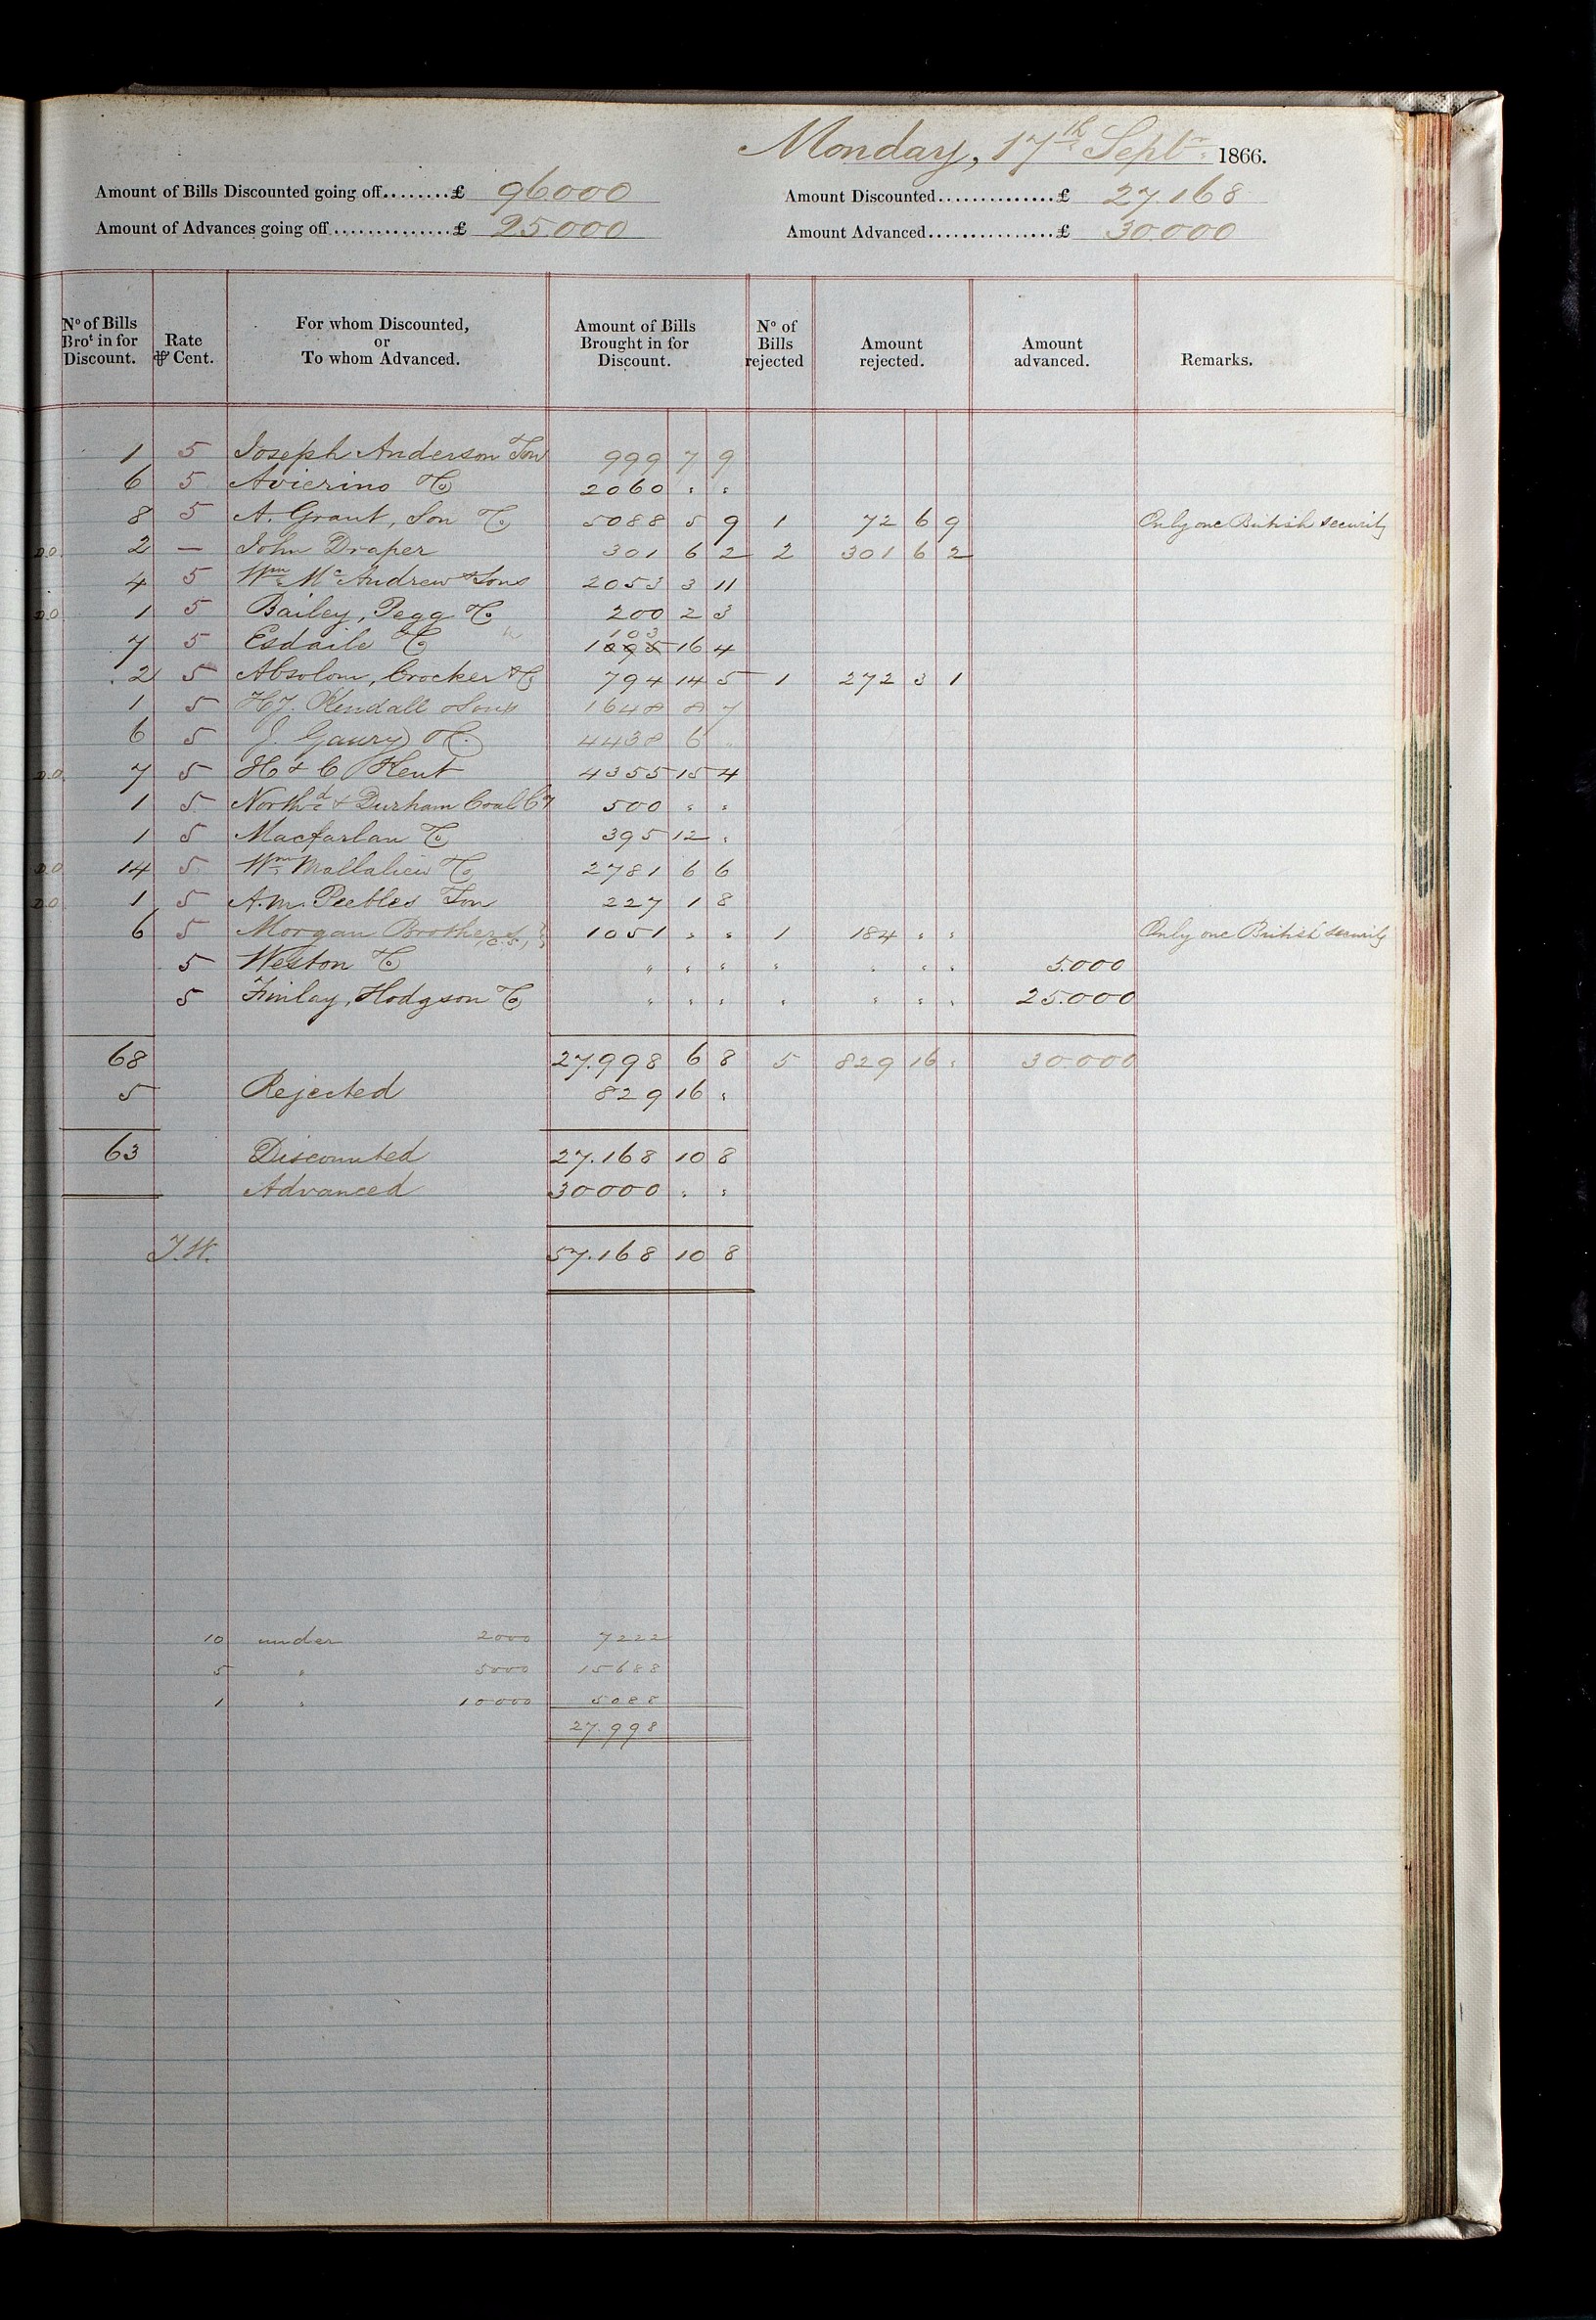 Monday, 17th Septr 1866.
Amount of Bills Discounted going off........£ 96000 Amount Discounted..............£ 27.168
Amount of Advances going off..............£ 25.000 Amount Advanced................£ 30.000
No of Bills Brot in for Discount. Rate ⅌ Cent. For whom Discounted, or To whom Advanced. Amount of Bills Brought in for Discount. No of Bills rejected Amount rejected. Amount advanced. Remarks.
1 5 Joseph Anderson Son 999 7 9
6 5 Avierino & Co 2060 " "
8 5 A. Grant, Son & Co 5088 5 9 1 72 6 9 Only one British security
D.O. 2 — John Draper 301 6 2 2 301 6 2
4 5 Wm McAndrew & Sons 2053 3 11
D.O. 1 5 Bailey, Pegg & Co 200 2 3
7 5 Esdaile & Co 1103 16 4
2 5 Absolom, Crocker & Co 794 14 5 1 272 3 1
1 5 H.J. Kendall & Sons 1648 8 7
6 5 J. Gaury & Co. 4438 6 "
D.O. 7 5 H & C Kent 4355 15 4
1 5 Northd & Durham Coal Cy 500 " "
1 5 Macfarlan & Co 395 12 "
D.O. 14 5 Wm Mallalieu & Co 2781 6 6
D.O. 1 5 A.M. Peebles Son 227 1 8
6 5 Morgan Brothers, 1051 " " 1 184 " " Only one British security
5 Weston & Co " " " " " " " 5.000
5 Finlay, Hodgson & Co " " " " " " " 25.000
68 27.998 6 8 5 829 16 " 30.000
5 Rejected 829 16 "
63 Discounted 27.168 10 8
Advanced 30000 " "
J.W. 57.168 10 8
10 under 2000 7222
5 " 5000 15688
1 " 10000 5088
27.998